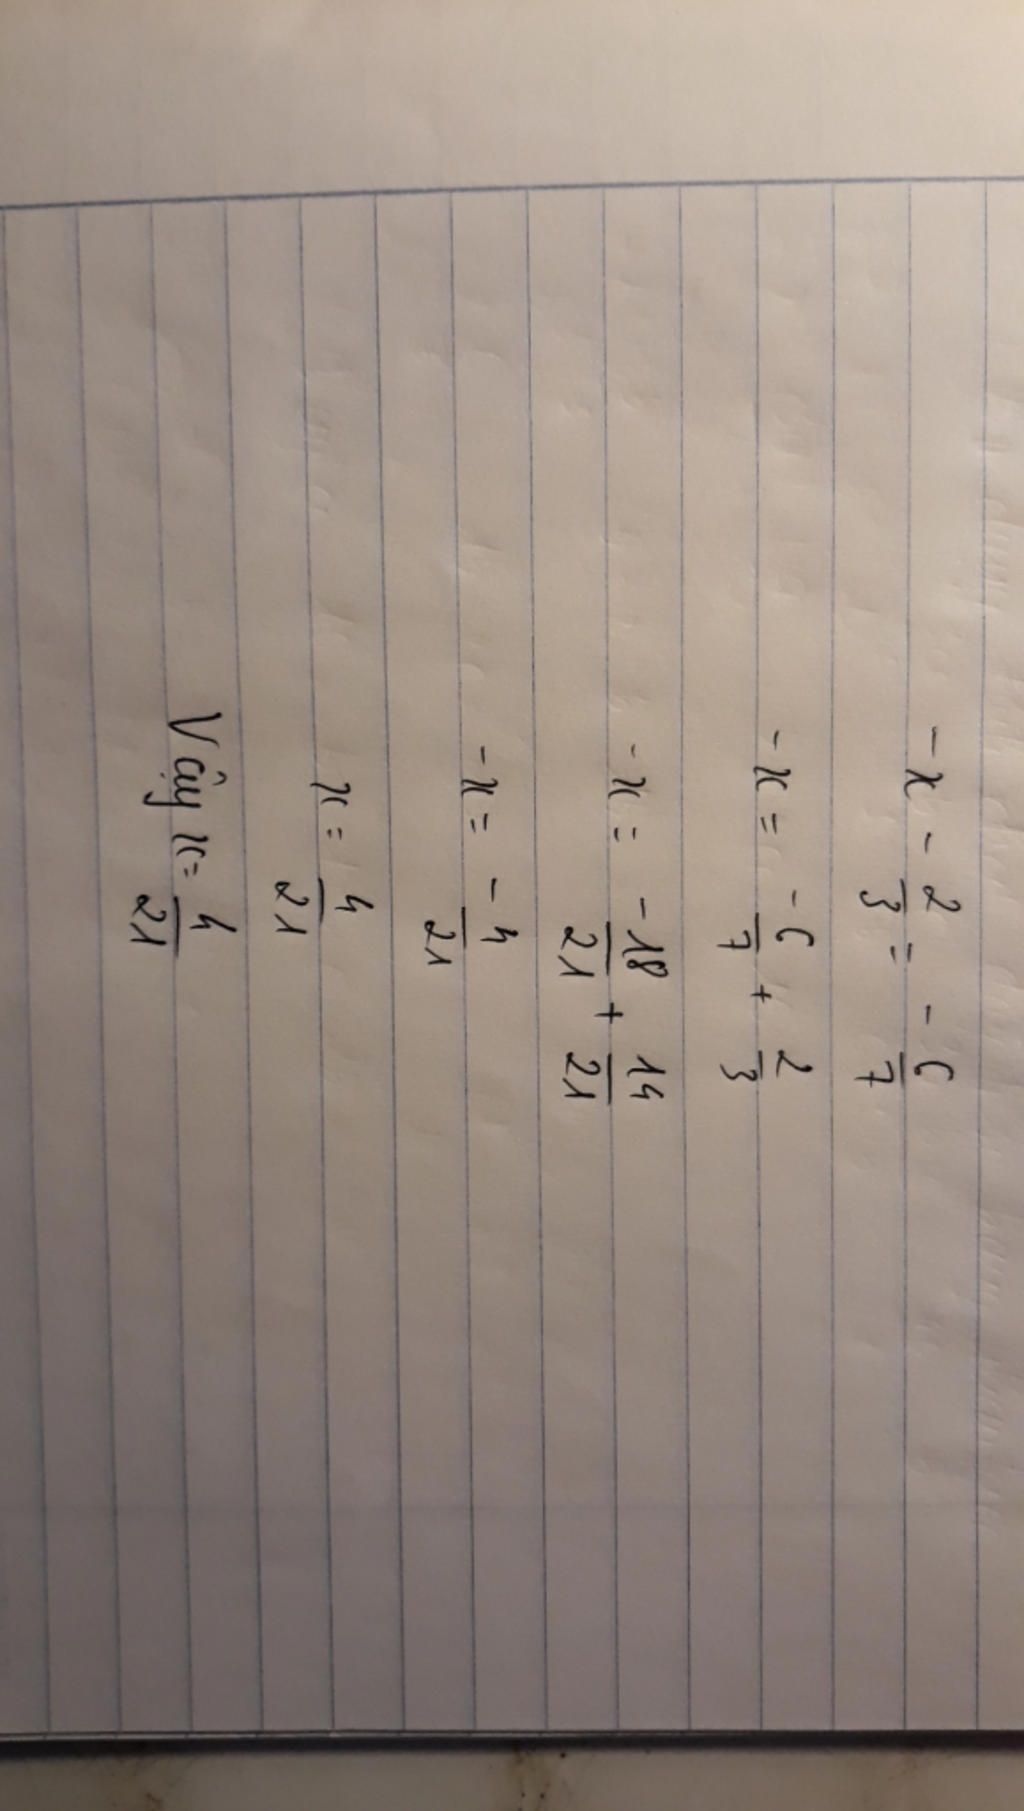 -x - 2/3 = -6/7
-x = -6/7 + 2/3
-x = -18/21 + 14/21
-x = -4/21
x = 4/21
Vậy x = 4/21